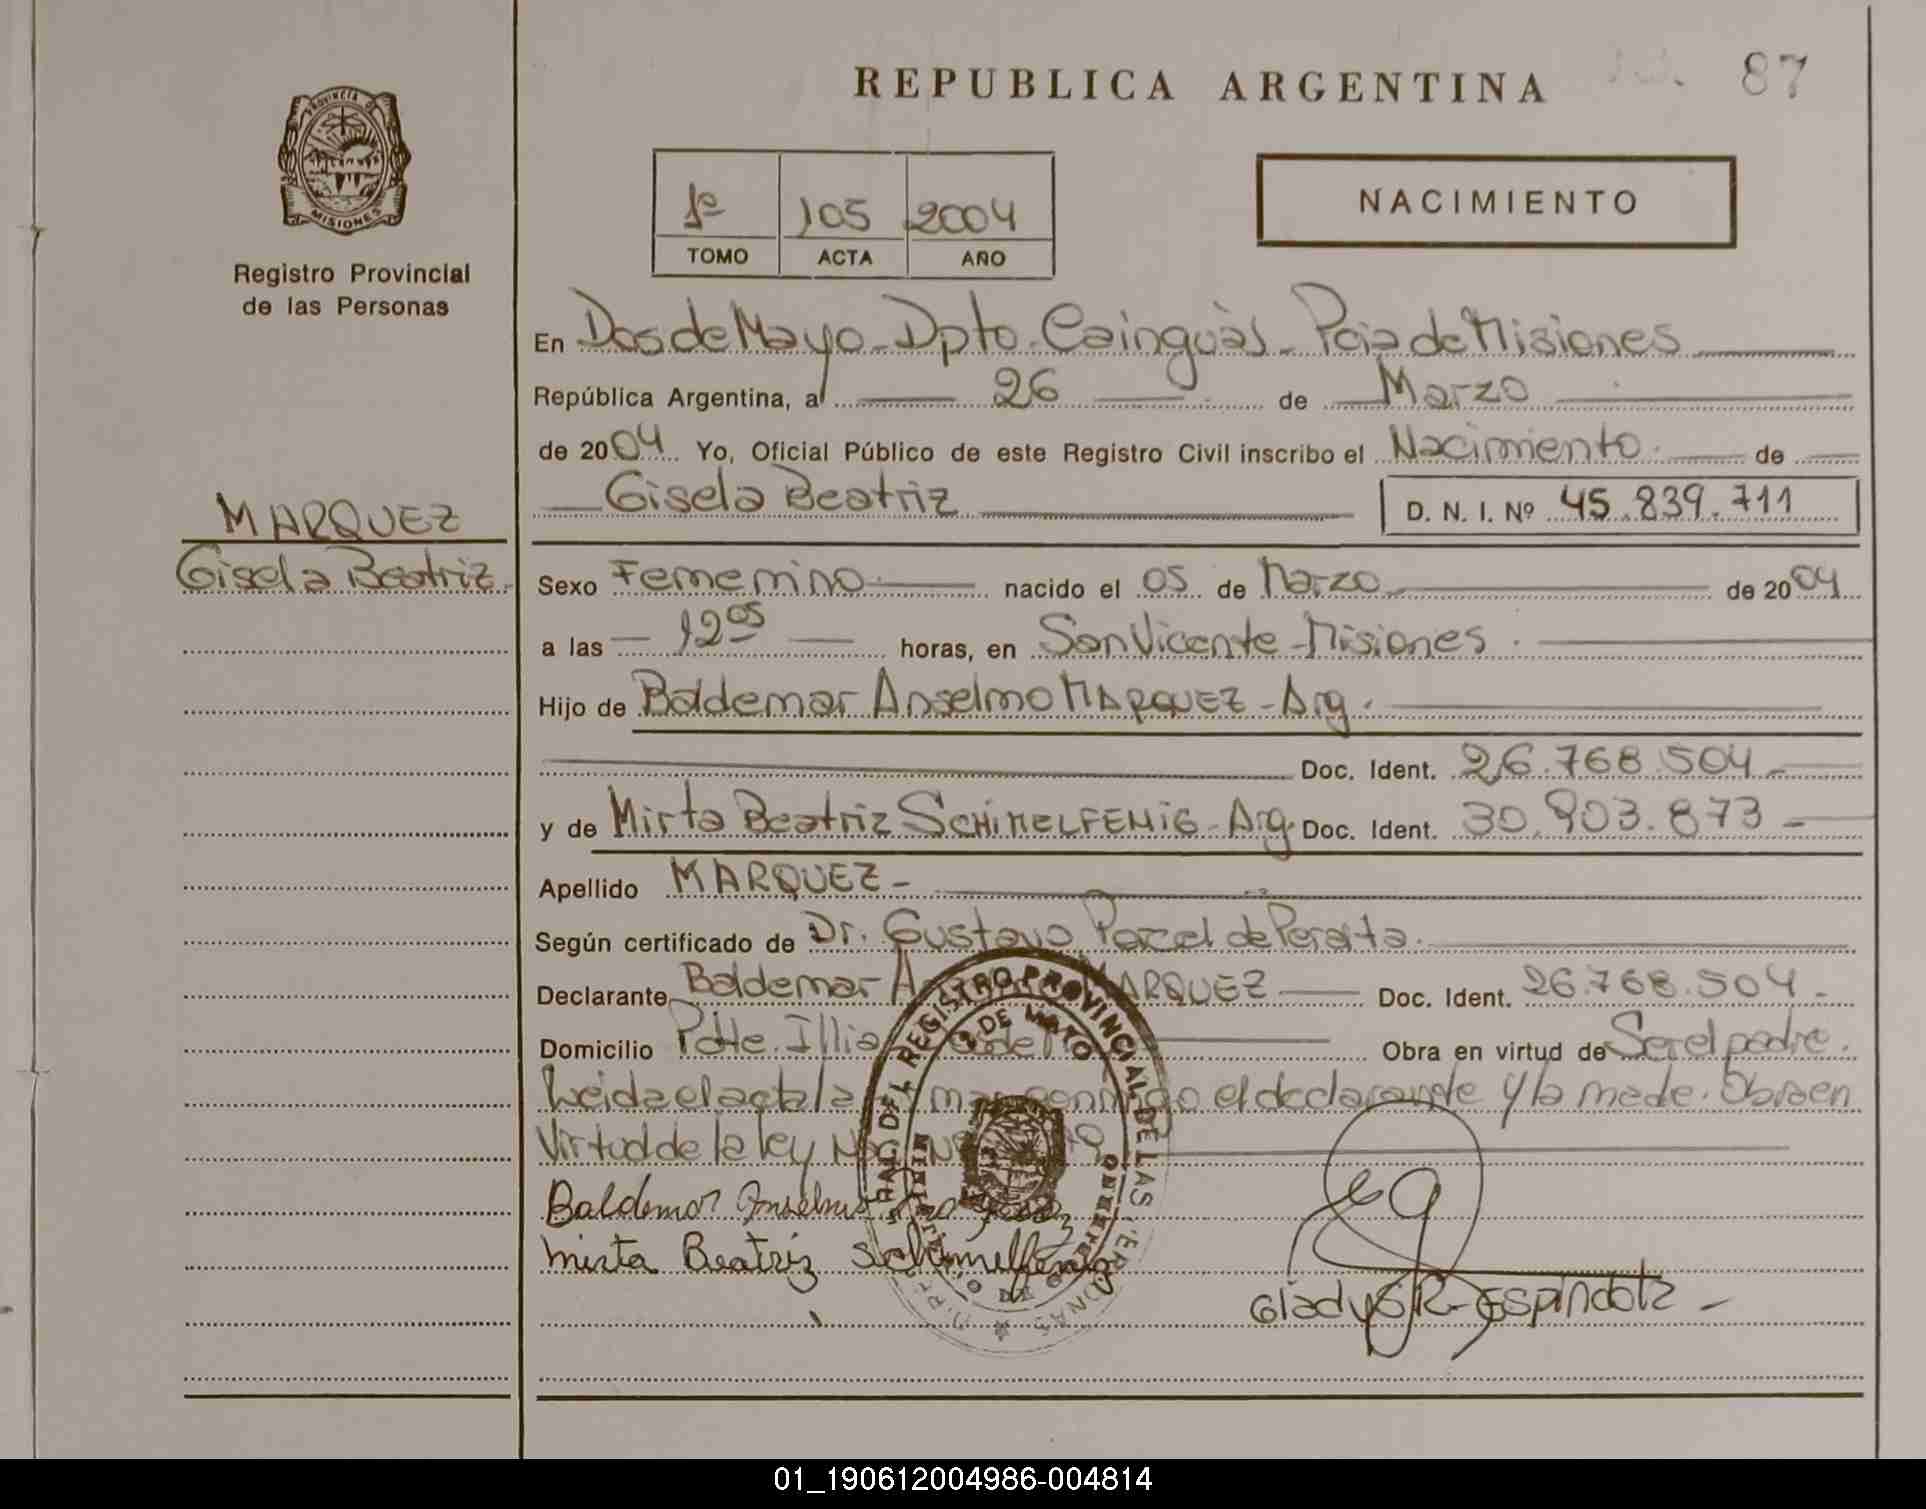 87
REPUBLICA ARGENTINA
PROVINCIA D
MISIONES
Registro Provincial
de las Personas
1º 105 2004
TOMO ACTA AÑO
NACIMIENTO
En Dos de Mayo - Dpto. Cainguàs - Pcia de Misiones
República Argentina, a 26 de Marzo
de 2004 Yo, Oficial Público de este Registro Civil inscribo el Nacimiento. de
Gisela Beatriz D. N. I. Nº 45.839.711
MARQUEZ
Gisela Beatriz.
Sexo Femenino. nacido el 05 de Marzo de 2004
a las 12 05 horas, en San Vicente - Misiones.
Hijo de Baldemar Anselmo MARQUEZ - Arg.
Doc. Ident. 26.768.504 -
y de Mirta Beatriz SCHIMELFENIG - Arg. Doc. Ident. 30.903.873 -
Apellido MARQUEZ -
Según certificado de Dr. Gustavo Porcel de Peralta.
Declarante Baldemar A MARQUEZ Doc. Ident. 26.768.504 -
Domicilio Pdte. Illia Obra en virtud de Ser el padre.
Leida el acta la conmigo el declarante y la madre. Obra en
Virtud de la ley
Baldemar Anselmo
Mirta Beatriz Schimelfenig
Gladys R. Espindola -
REGISTRO PROVINCIAL DE LAS
2 DE MAYO
01_190612004986-004814